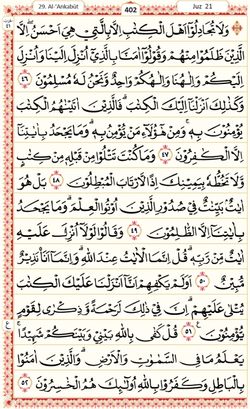 29. Al-'Ankabût
402
Juz 21
وَلَا تُجَادِلُوٓا۟ أَهْلَ ٱلْكِتَٰبِ إِلَّا بِٱلَّتِى هِىَ أَحْسَنُ إِلَّا
ٱلَّذِينَ ظَلَمُوا۟ مِنْهُمْ وَقُولُوٓا۟ ءَامَنَّا بِٱلَّذِىٓ أُنزِلَ إِلَيْنَا وَأُنزِلَ
إِلَيْكُمْ وَإِلَٰهُنَا وَإِلَٰهُكُمْ وَٰحِدٌ وَنَحْنُ لَهُۥ مُسْلِمُونَ ٤٦
وَكَذَٰلِكَ أَنزَلْنَآ إِلَيْكَ ٱلْكِتَٰبَ فَٱلَّذِينَ ءَاتَيْنَٰهُمُ ٱلْكِتَٰبَ
يُؤْمِنُونَ بِهِۦ وَمِنْ هَٰٓؤُلَآءِ مَن يُؤْمِنُ بِهِۦ وَمَا يَجْحَدُ بِـَٔايَٰتِنَآ
إِلَّا ٱلْكَٰفِرُونَ ٤٧ وَمَا كُنتَ تَتْلُوا۟ مِن قَبْلِهِۦ مِن كِتَٰبٍ
وَلَا تَخُطُّهُۥ بِيَمِينِكَ إِذًا لَّٱرْتَابَ ٱلْمُبْطِلُونَ ٤٨ بَلْ هُوَ
ءَايَٰتٌۢ بَيِّنَٰتٌ فِى صُدُورِ ٱلَّذِينَ أُوتُوا۟ ٱلْعِلْمَ وَمَا يَجْحَدُ
بِـَٔايَٰتِنَآ إِلَّا ٱلظَّٰلِمُونَ ٤٩ وَقَالُوا۟ لَوْلَآ أُنزِلَ عَلَيْهِ
ءَايَٰتٌ مِّن رَّبِّهِۦ قُلْ إِنَّمَا ٱلْءَايَٰتُ عِندَ ٱللَّهِ وَإِنَّمَآ أَنَا۠ نَذِيرٌ
مُّبِينٌ ٥٠ أَوَلَمْ يَكْفِهِمْ أَنَّآ أَنزَلْنَا عَلَيْكَ ٱلْكِتَٰبَ
يُتْلَىٰ عَلَيْهِمْ إِنَّ فِى ذَٰلِكَ لَرَحْمَةً وَذِكْرَىٰ لِقَوْمٍ
يُؤْمِنُونَ ٥١ قُلْ كَفَىٰ بِٱللَّهِ بَيْنِى وَبَيْنَكُمْ شَهِيدًا
يَعْلَمُ مَا فِى ٱلسَّمَٰوَٰتِ وَٱلْأَرْضِ وَٱلَّذِينَ ءَامَنُوا۟
بِٱلْبَٰطِلِ وَكَفَرُوا۟ بِٱللَّهِ أُو۟لَٰٓئِكَ هُمُ ٱلْخَٰسِرُونَ ٥٢
ع